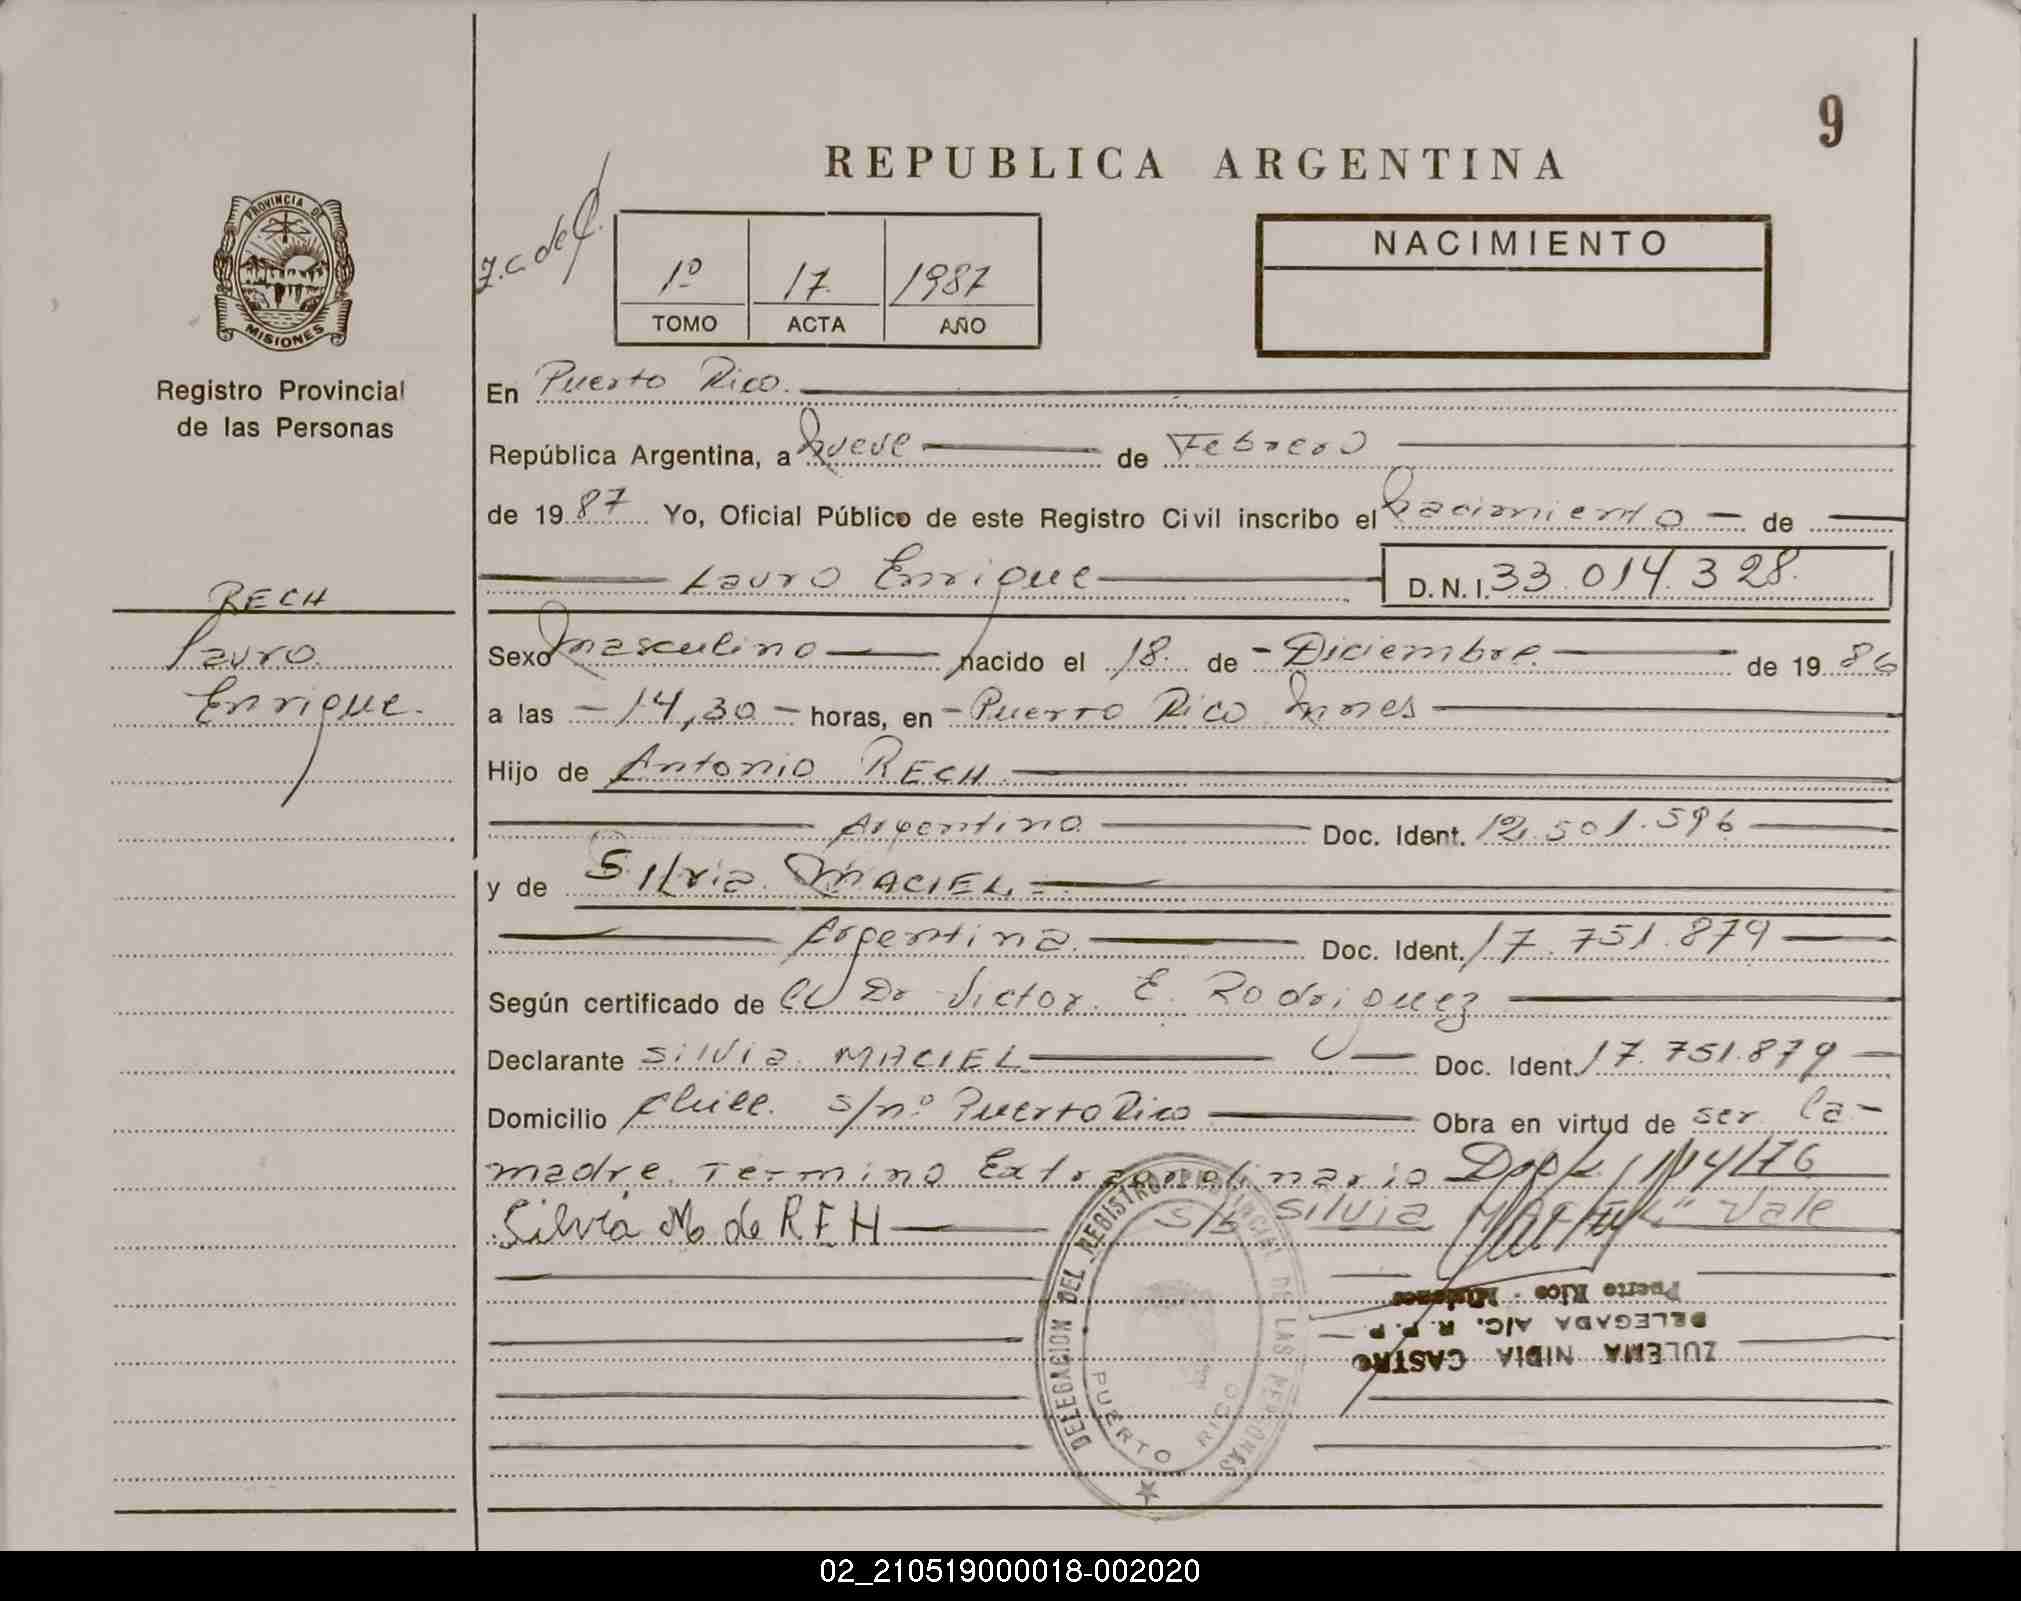 9
REPUBLICA ARGENTINA
PROVINCIA DE
MISIONES
Registro Provincial
de las Personas
1º 17 1987
TOMO ACTA AÑO
NACIMIENTO
En Puerto Rico.
República Argentina, a Nueve de Febrero
de 19 87 Yo, Oficial Público de este Registro Civil inscribo el Nacimiento de
Lauro Enrique D.N.I. 33.014.328.
RECH
Lauro
Enrique.
Sexo Masculino nacido el 18 de Diciembre de 19 86
a las 14,30 horas, en Puerto Rico Mnes
Hijo de Antonio RECH
Argentino Doc. Ident. 12.501.596
y de Silvia MACIEL
Argentina Doc. Ident. 17.751.879
Según certificado de el Dr Victor E. Rodriguez
Declarante Silvia MACIEL Doc. Ident. 17.751.879
Domicilio Chile s/nº Puerto Rico Obra en virtud de ser la
madre. Termino Extraordinario 1114/76
Silvia M de REH S/b Silvia Vale
DELEGACION DEL REGISTRO PROVINCIAL DE LAS PERSONAS
PUERTO RICO
ZULEMA NIDIA CASTRO
DELEGADA A/C. R. P. P.
Puerto Rico - Misiones
02_210519000018-002020